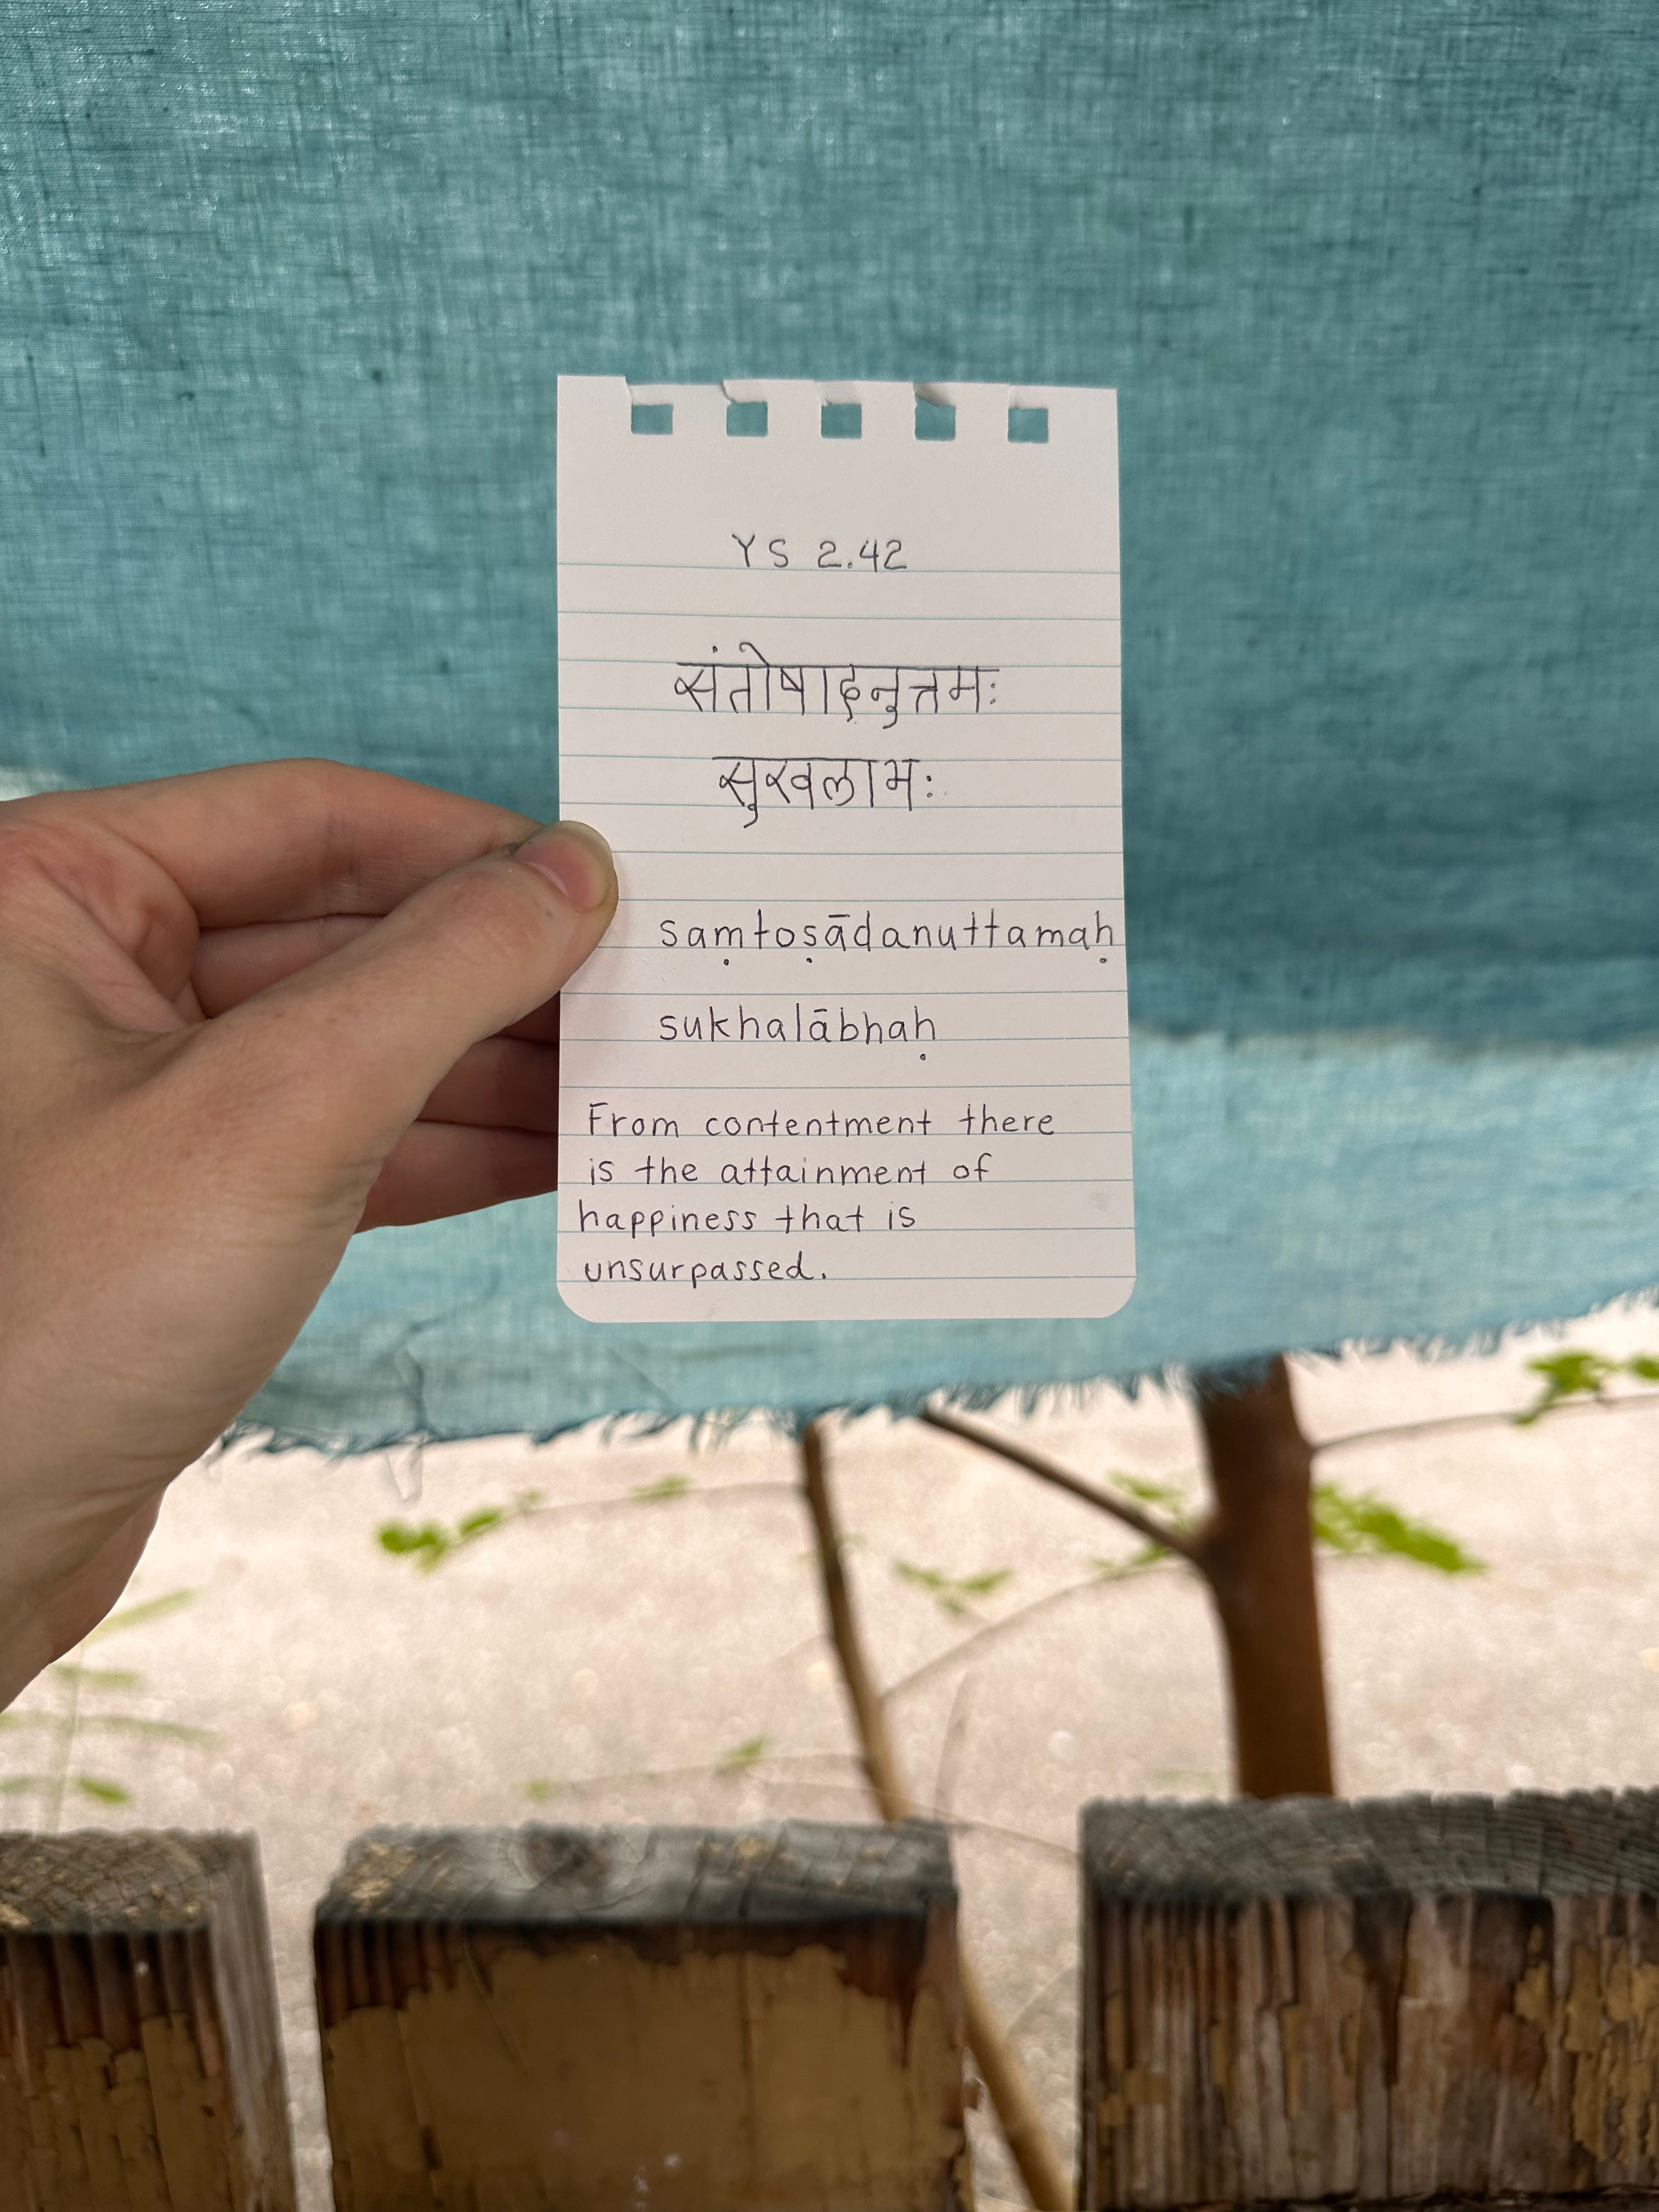 YS 2.42
संतोषादनुत्तमः
सुखलाभः
saṃtoṣādanuttamaḥ
sukhalābhaḥ
From contentment there
is the attainment of
happiness that is
unsurpassed.